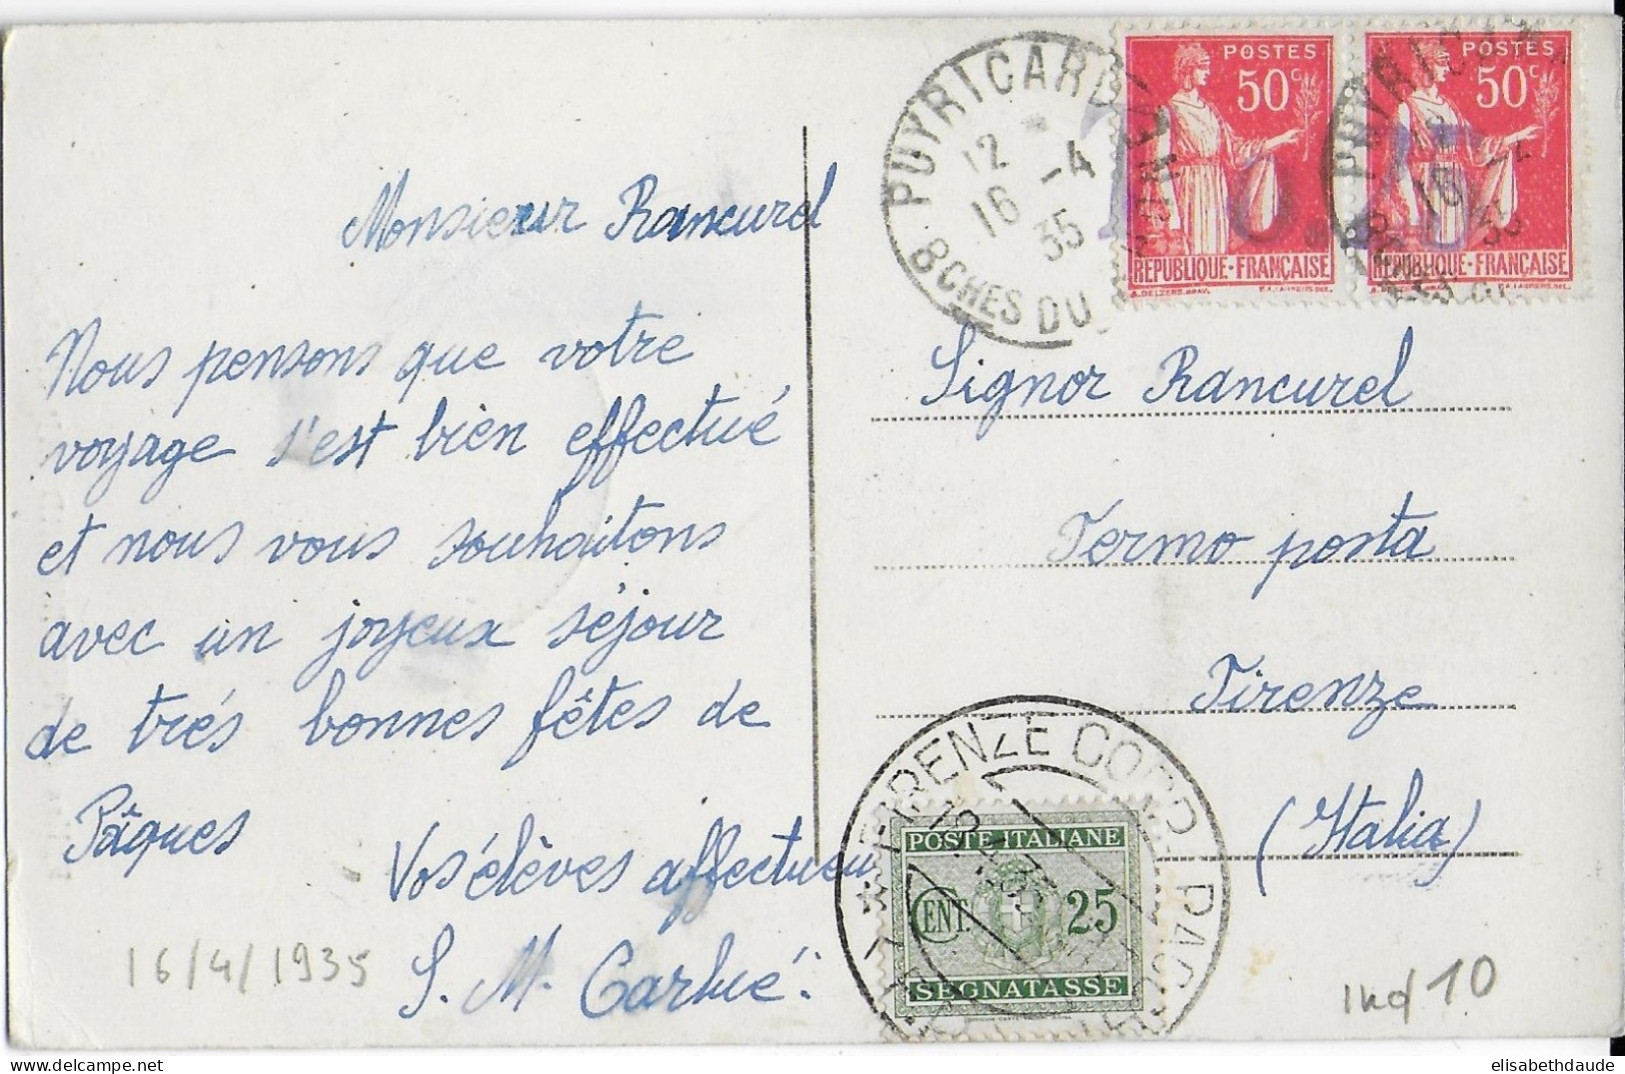 Monsieur Rancurel
Nous pensons que votre
voyage s'est bien effectué
et nous vous souhaitons
avec un joyeux séjour
de trés bonnes fêtes de
Pâques
Vos élèves affectueu
S. M. Carlué
16/4/1935
PUYRICARD
12
16 -4
35
BCHES DU
POSTES
50c
REPUBLIQUE·FRANÇAISE
POSTES
50c
REPUBLIQUE·FRANÇAISE
Signor Rancurel
Fermo posta
Firenze
(Italia)
FIRENZE
POSTE ITALIANE
CENT. 25
SEGNATASSE
Ind 10
elisabethdaude